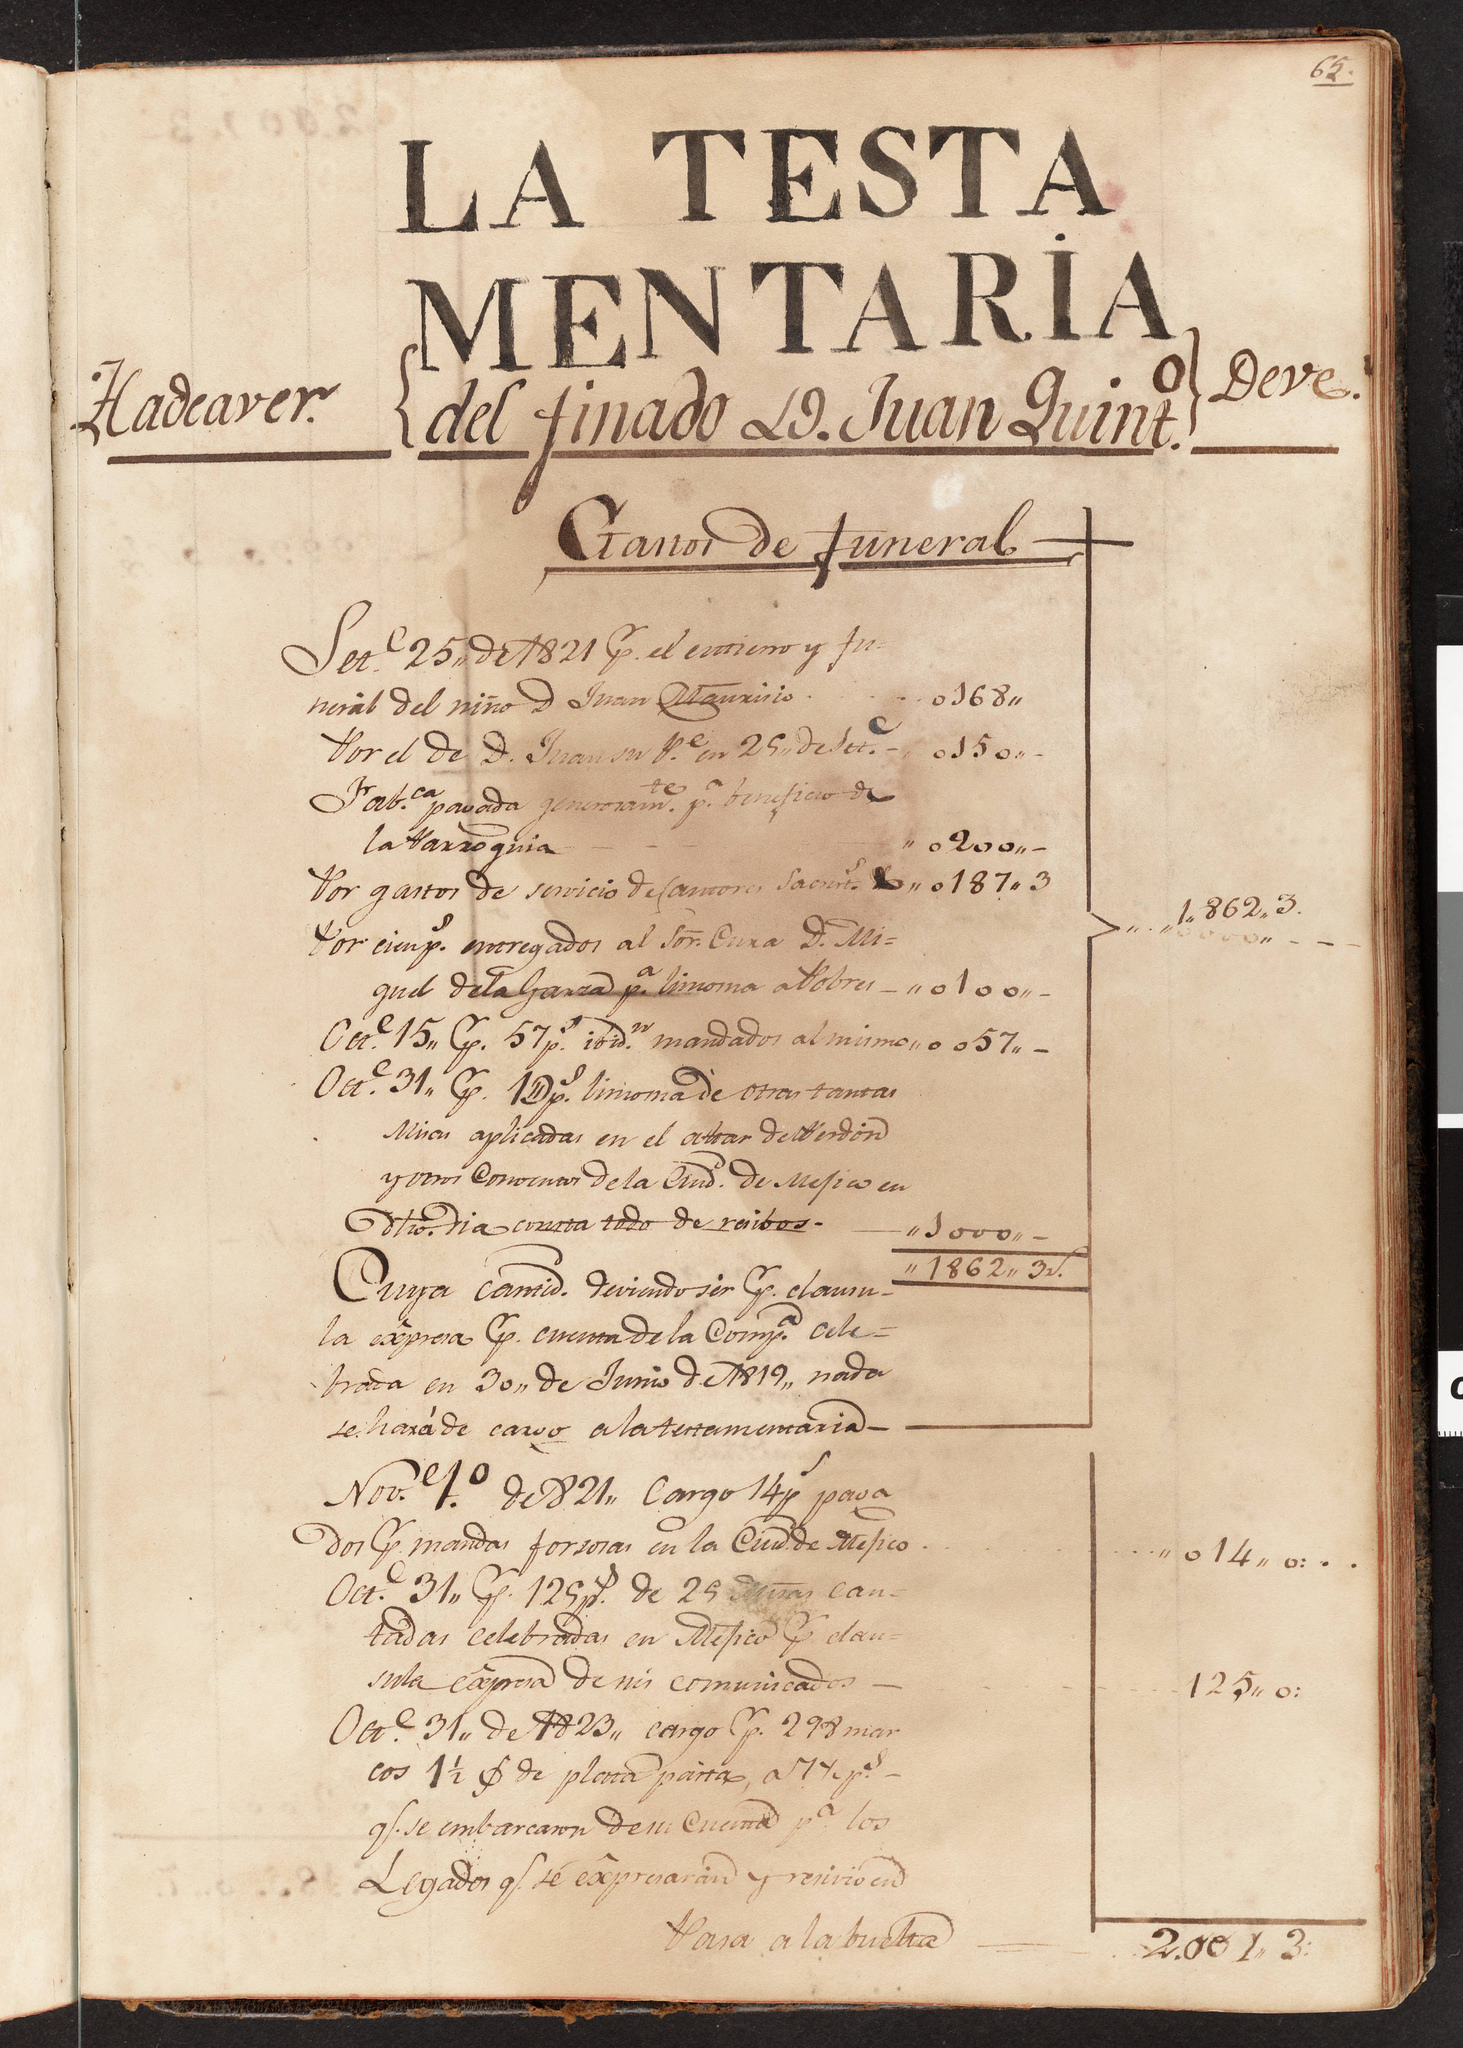 65.
LA TESTA
MENTARİA
Hadeaver. { del finado D. Juan Quint.o } Deve.
Gastos de funeral
Set.e 25,, de 1821 p. el entierro y fu=
neral del niño D Juan Maurisio - - - o168,,
Por el de D. Juan su P.e en 25,, de Set.e - ,, o150,,-
Fab.ca pagada generosam.te p.a beneficio de
la Parroquia - - - ,, o200,,-
Por gastos de servicio de Cantores Sacrist.s ,, o187,,3
1,,862,,3.
Por cien p.s entregados al Sor. Cura D. Mi=
guel dela Garza p.a limosna a Pobres - ,, o100,,-
Oct.e 15,, p. 57 p.s ibid.m mandados al mismo ,, o o57,, -
Oct.e 31,, p. 1000 p.s limosna de otras tantas
Misas aplicadas en el altar de Perdón
y otros Conventos de la Ciud. de Mésico en
dho. dia consta todo de resibos. - ,,1000,,-
,,1862,,3r.
Cuya cantid. deviendo ser p. clausu-
la expresa p. cuenta de la Comp.a cele=
brada en 30,, de Junio de 1819,, nada
se hará de cargo a la testamentaria -
Nov.e 1.o de 821,, Cargo 14 p.s paga
dos p. mandas forsosas en la Ciud. de Mésico ,, o14,,o:
Oct.e 31,, p. 125 p.s de 25 Misas can=
tadas celebradas en Mésico p. clau=
sula expresa de sus comunicados - 125,,o:
Oct.e 31,, de 1823,, cargo p. 298 mar
cos 1½ de plata pasta, a p.s -
q. se embarcaron de su Cuenta p.a los
Legados q. se expresarán y resivio en
Pasa a la buelta 2.001,,3: